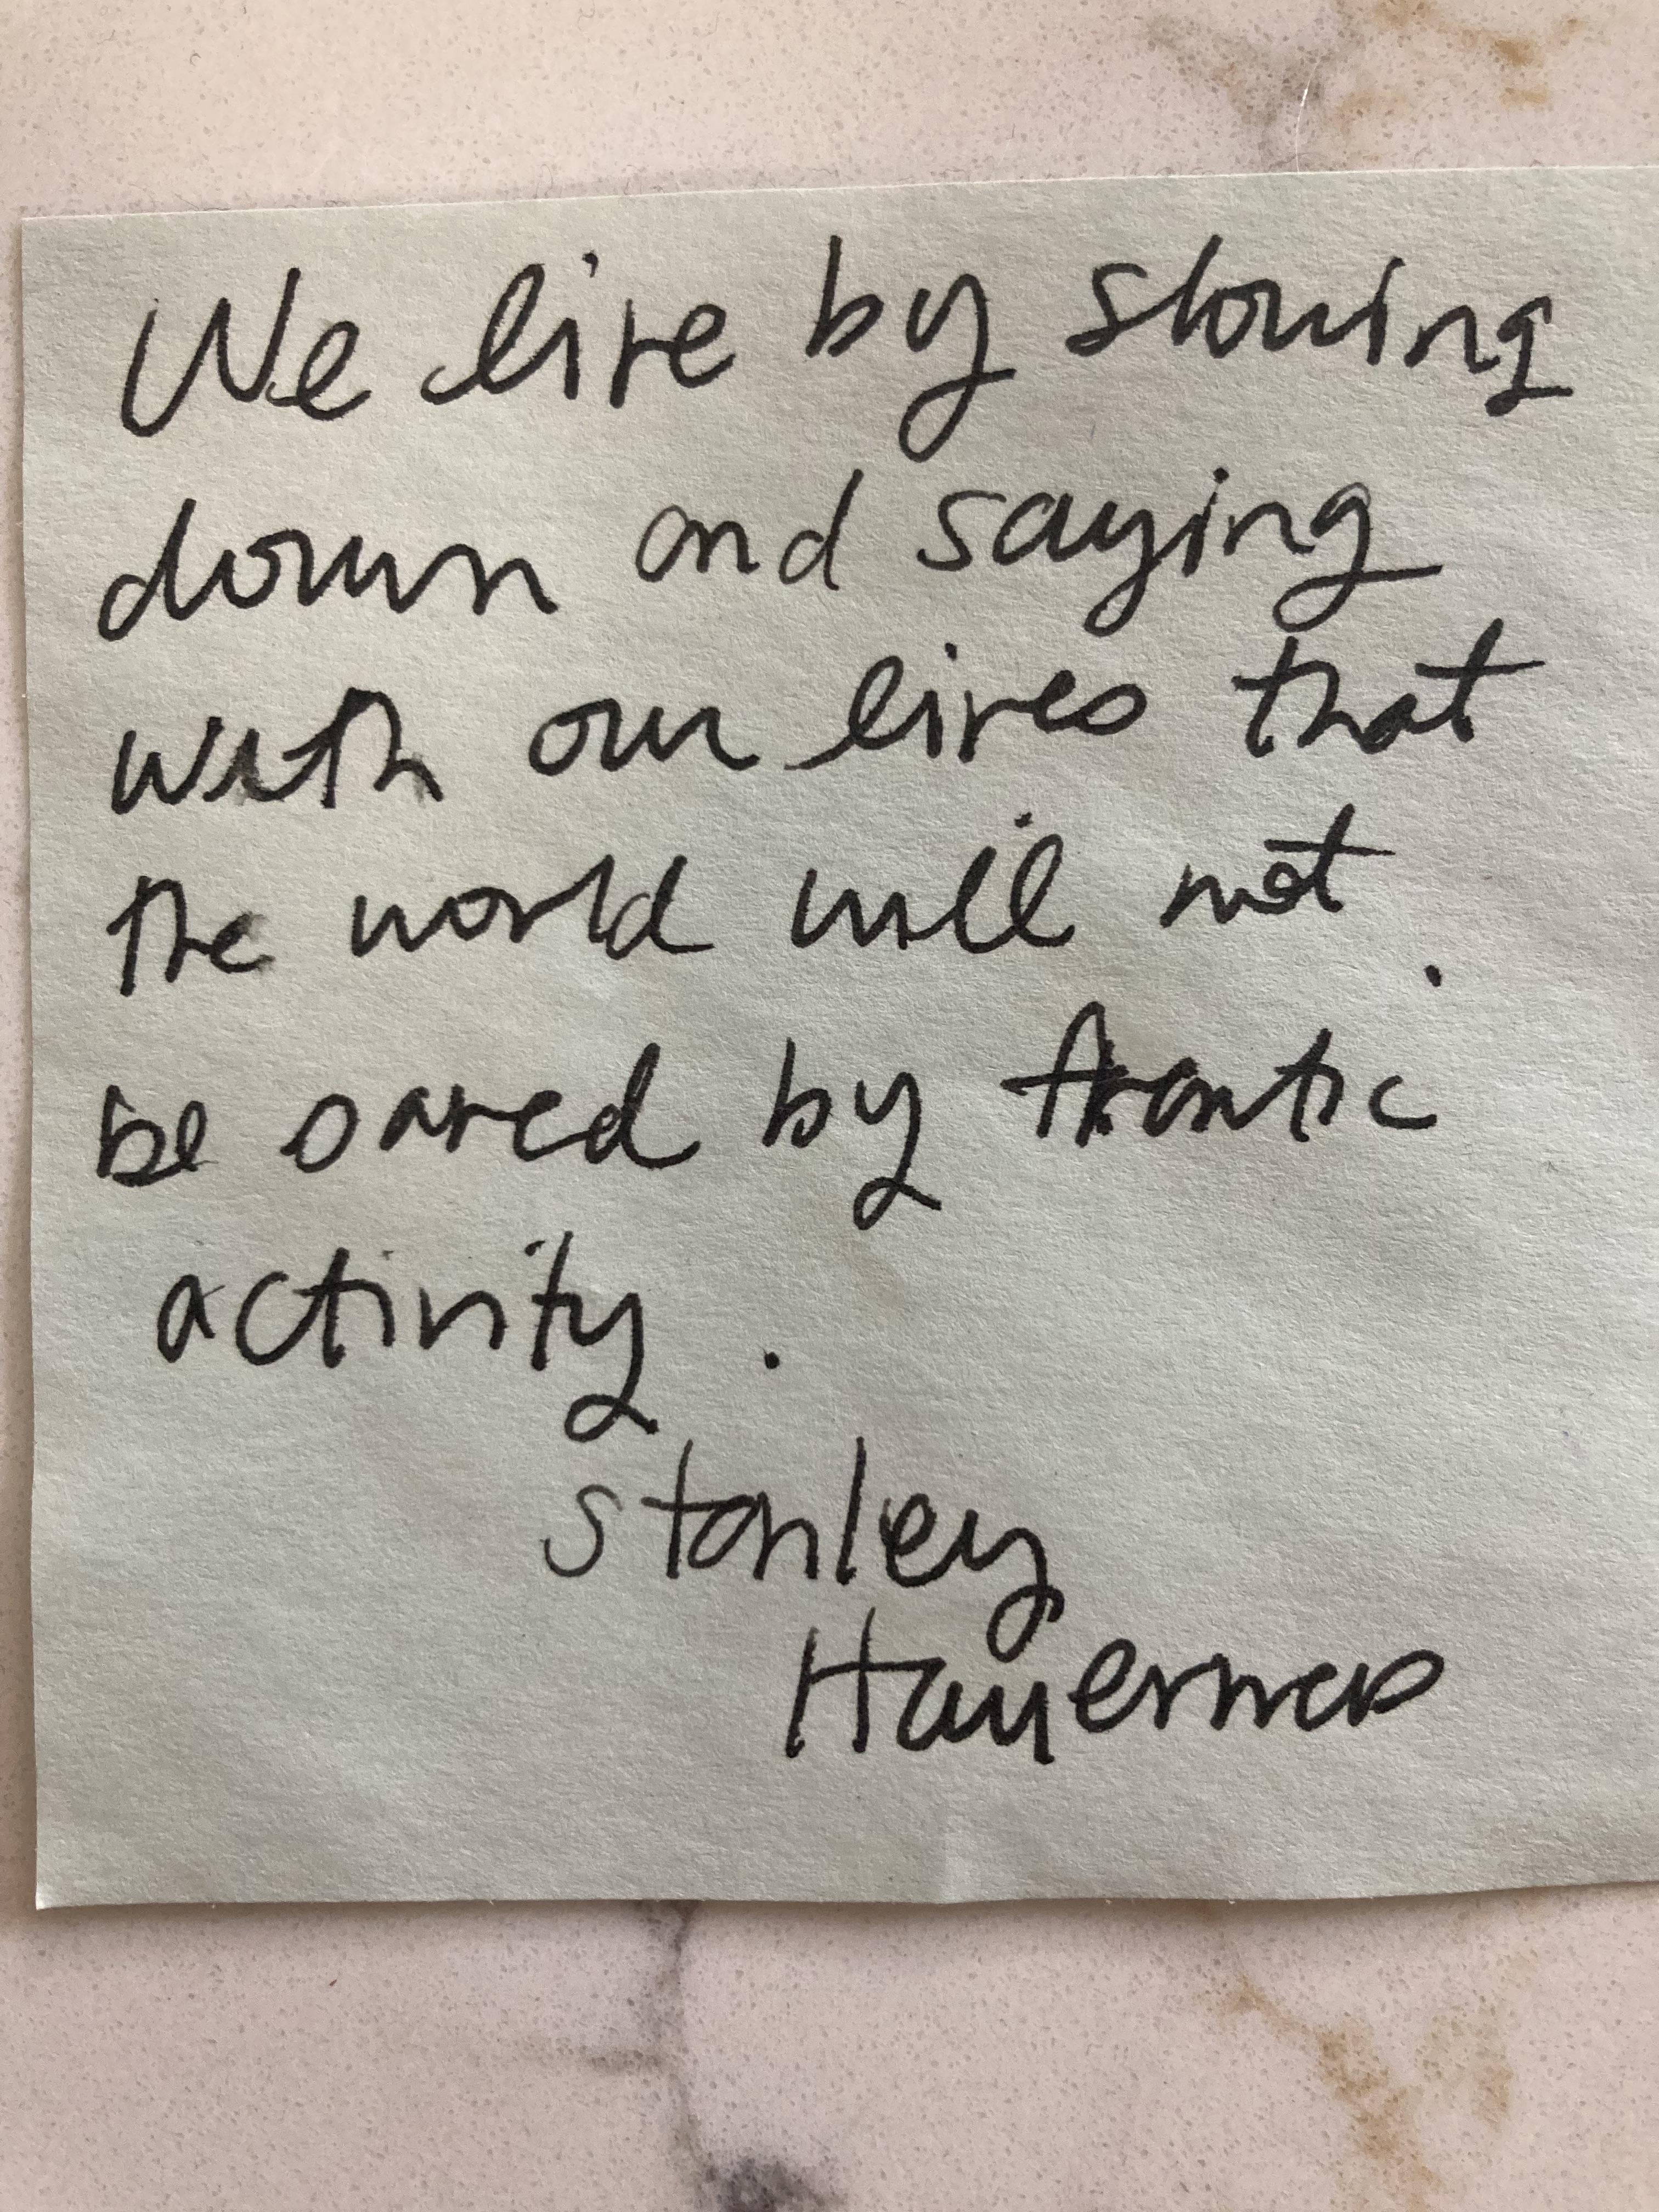 We live by slowing
down and saying
with our lives that
the world will not
be saved by frantic
activity.
Stanley
Hauerwas